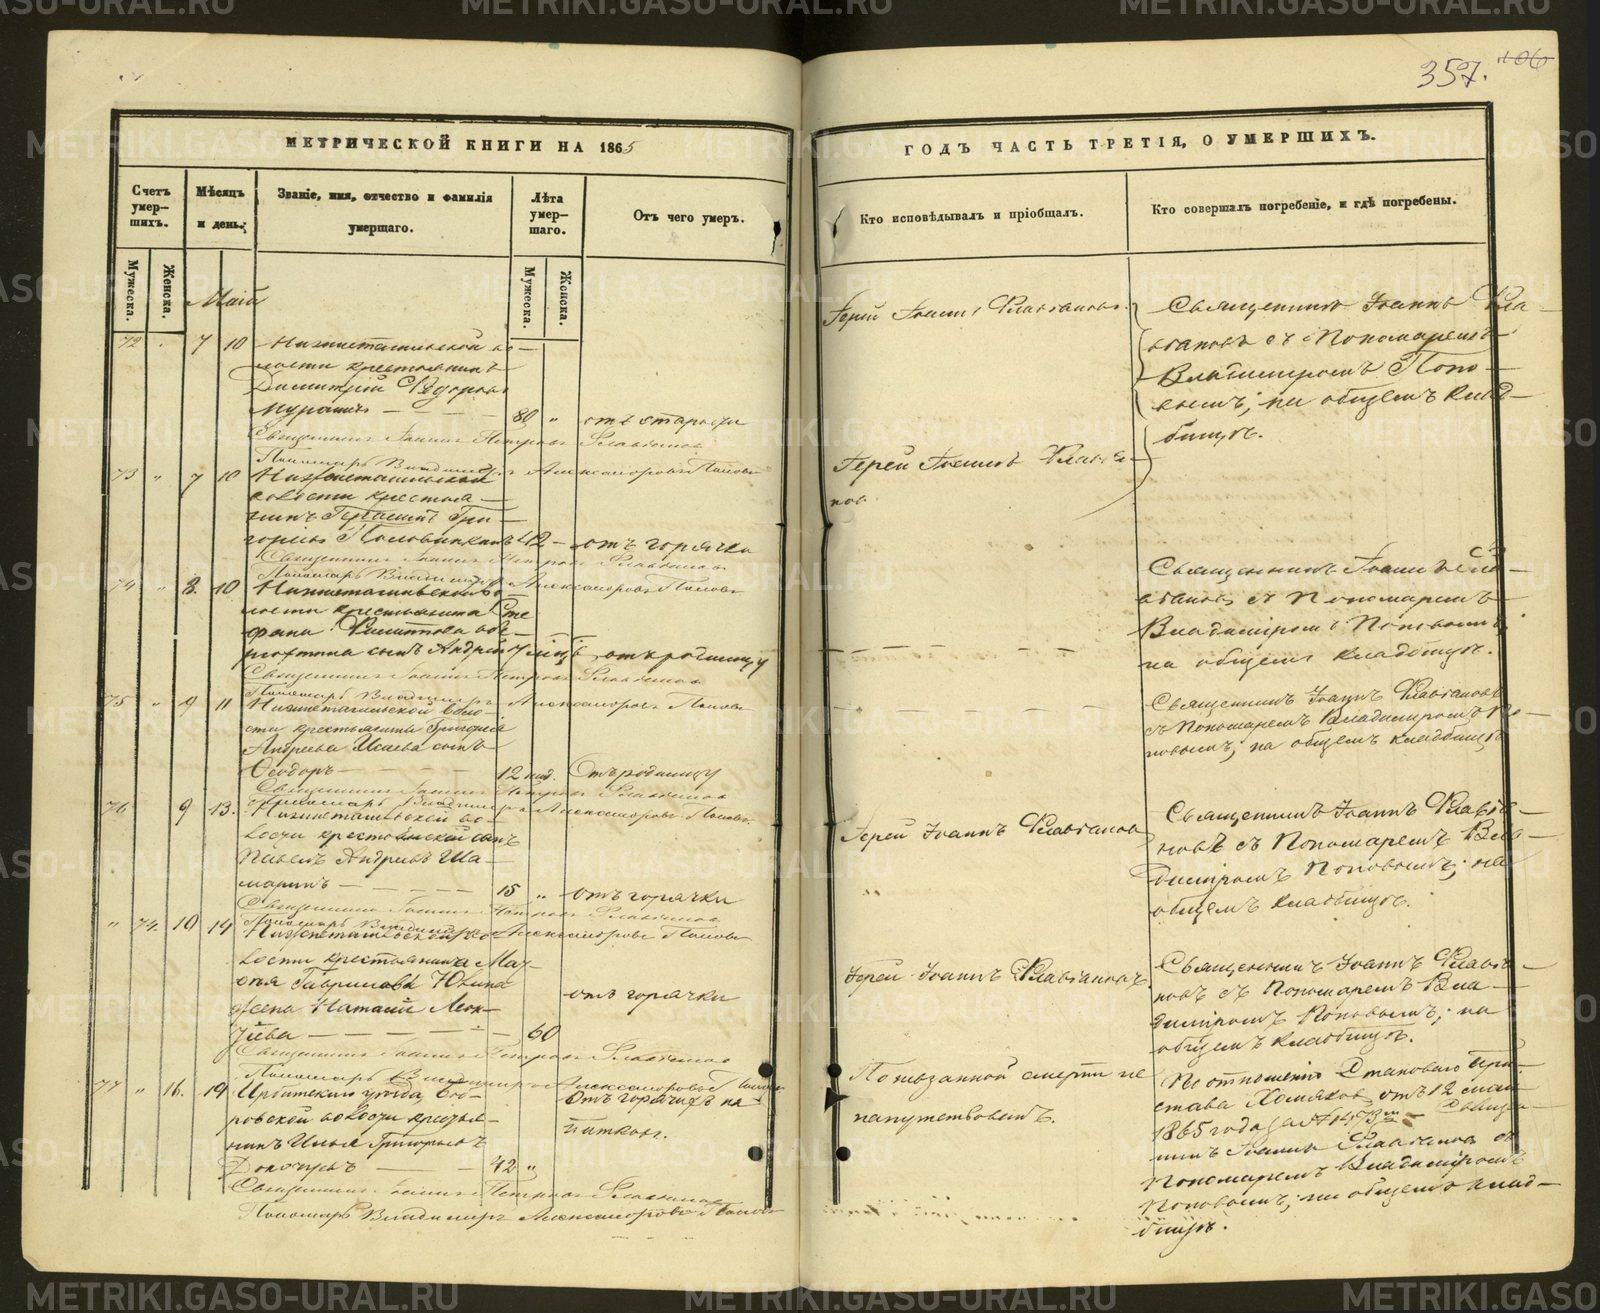 METRIKI.GASO-URAL.RU
357. 106
МЕТРИЧЕСКОЙ КНИГИ НА 1865
ГОДЪ ЧАСТЬ ТРЕТІЯ, О УМЕРШИХЪ.
Счетъ умер-шихъ.
Мѣсяцъ и день.
Званіе, имя, отчество и фамилія умершаго.
Лѣта умер-шаго.
Отъ чего умеръ.
Кто исповѣдывалъ и пріобщалъ.
Кто совершалъ погребеніе, и гдѣ погребены.
Мужеска.
Женска.
Мужеска.
Женска.
Маія
72 7 10 Нижнетагильской во-
лости крестьянинъ
Димитрій Ѳедоровъ
80 „ отъ старости
Священникъ Іоаннъ Петровъ Флавіановъ
Пономарь Владиміръ Александровъ Поповъ
73 „ 7 10 Нижнетагильской
волости крестья-
нинъ Герасимъ Гри-
42 – отъ горячки
Священникъ Іоаннъ Петровъ Флавіановъ
Пономарь Владиміръ Александровъ Поповъ
74 „ 8. 10 Нижнетагильской во-
лости крестьянина Сте
фана
сынъ Андрей 7 мѣсц.
Священникъ Іоаннъ Петровъ Флавіановъ
Пономарь Владиміръ Александровъ Поповъ
75 „ 9 11 Нижнетагильской воло-
сти крестьянина Григорія
Андреева Исаева сынъ
Ѳеодоръ 12 нед. Отъ родимцу
Священникъ Іоаннъ Петровъ Флавіановъ
Пономарь Владиміръ Александровъ Поповъ
76 9 13. Нижнетагильской во-
лости крестьянской сынъ
Павелъ Андреевъ Ша-
маринъ 15 „ отъ горячки
Священникъ Іоаннъ Петровъ Флавіановъ
Пономарь Владиміръ Александровъ Поповъ
„ 74. 10 14 Нижнетагильской во-
лости крестьянина
Гаврилова Юдина
жена Наталія
отъ горячки
60
Священникъ Іоаннъ Петровъ Флавіановъ
Пономарь Владиміръ Александровъ Поповъ
77 „ 16. 19 Ирбитскаго уѣзда
волости крестья-
нинъ Илья Григорьевъ
42 „
Отъ горячихъ на-
питковъ.
Священникъ Іоаннъ Петровъ Флавіановъ
Пономарь Владиміръ Александровъ Поповъ
Іерей Іоаннъ Флавіановъ
Священникъ Іоаннъ Фла-
віановъ съ Пономаремъ
Владиміромъ Попо-
вымъ; на общемъ клад-
бищѣ.
Іерей Іоаннъ Флавіа-
новъ
Священникъ Іоаннъ Фла-
віановъ съ Пономаремъ
Владиміромъ Поповымъ
на общемъ кладбищѣ.
Священникъ Іоаннъ Флавіановъ
съ Пономаремъ Владиміромъ По-
повымъ; на общемъ кладбищѣ
Іерей Іоаннъ Флавіановъ
Священникъ Іоаннъ Флавіа-
новъ съ Пономаремъ Вла-
диміромъ Поповымъ; на
общемъ кладбищѣ.
Іерей Іоаннъ Флавіановъ.
Священникъ Іоаннъ Флавіа-
новъ съ Пономаремъ Вла-
диміромъ Поповымъ; на
общемъ кладбищѣ.
По внезапной смерти не
напутствованъ.
По отношенію Становаго При-
става Хомякова отъ 12 мая
1865 года за № Священ-
никъ Іоаннъ Флавіановъ съ
Пономаремъ Владиміромъ
Поповымъ; на общемъ клад-
бищѣ.